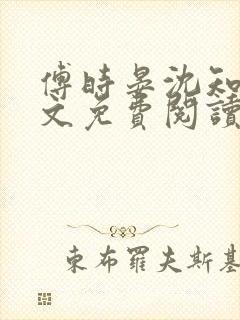 傅時晏沈知
文免費閱讀
東布羅夫斯基